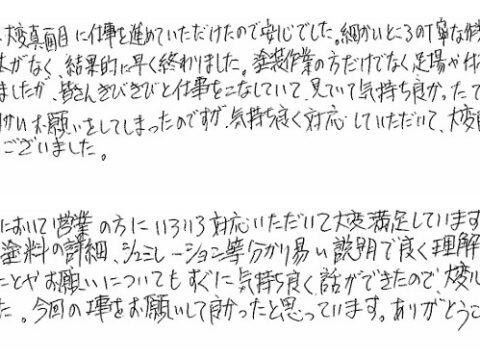 大変真面目に仕事を進めていただけたので安心でした。細かいところの丁寧な作
がなく、結果的に早く終わりました。塗装作業の方だけでなく足場や
ましたが、皆さんきびきびと仕事をこなしていて、見ていて気持ち良かったで
お願いをしてしまったのですが、気持ち良く対応していただいて、大変
ございました。
において営業の方にいろいろ対応いただいて大変満足しています
塗料の詳細、シュミレーション等分かり易い説明で良く理解
ことやお願いについてもすぐに気持ち良く話ができたので、大変
た。今回の工事をお願いして良かったと思っています。ありがとうご